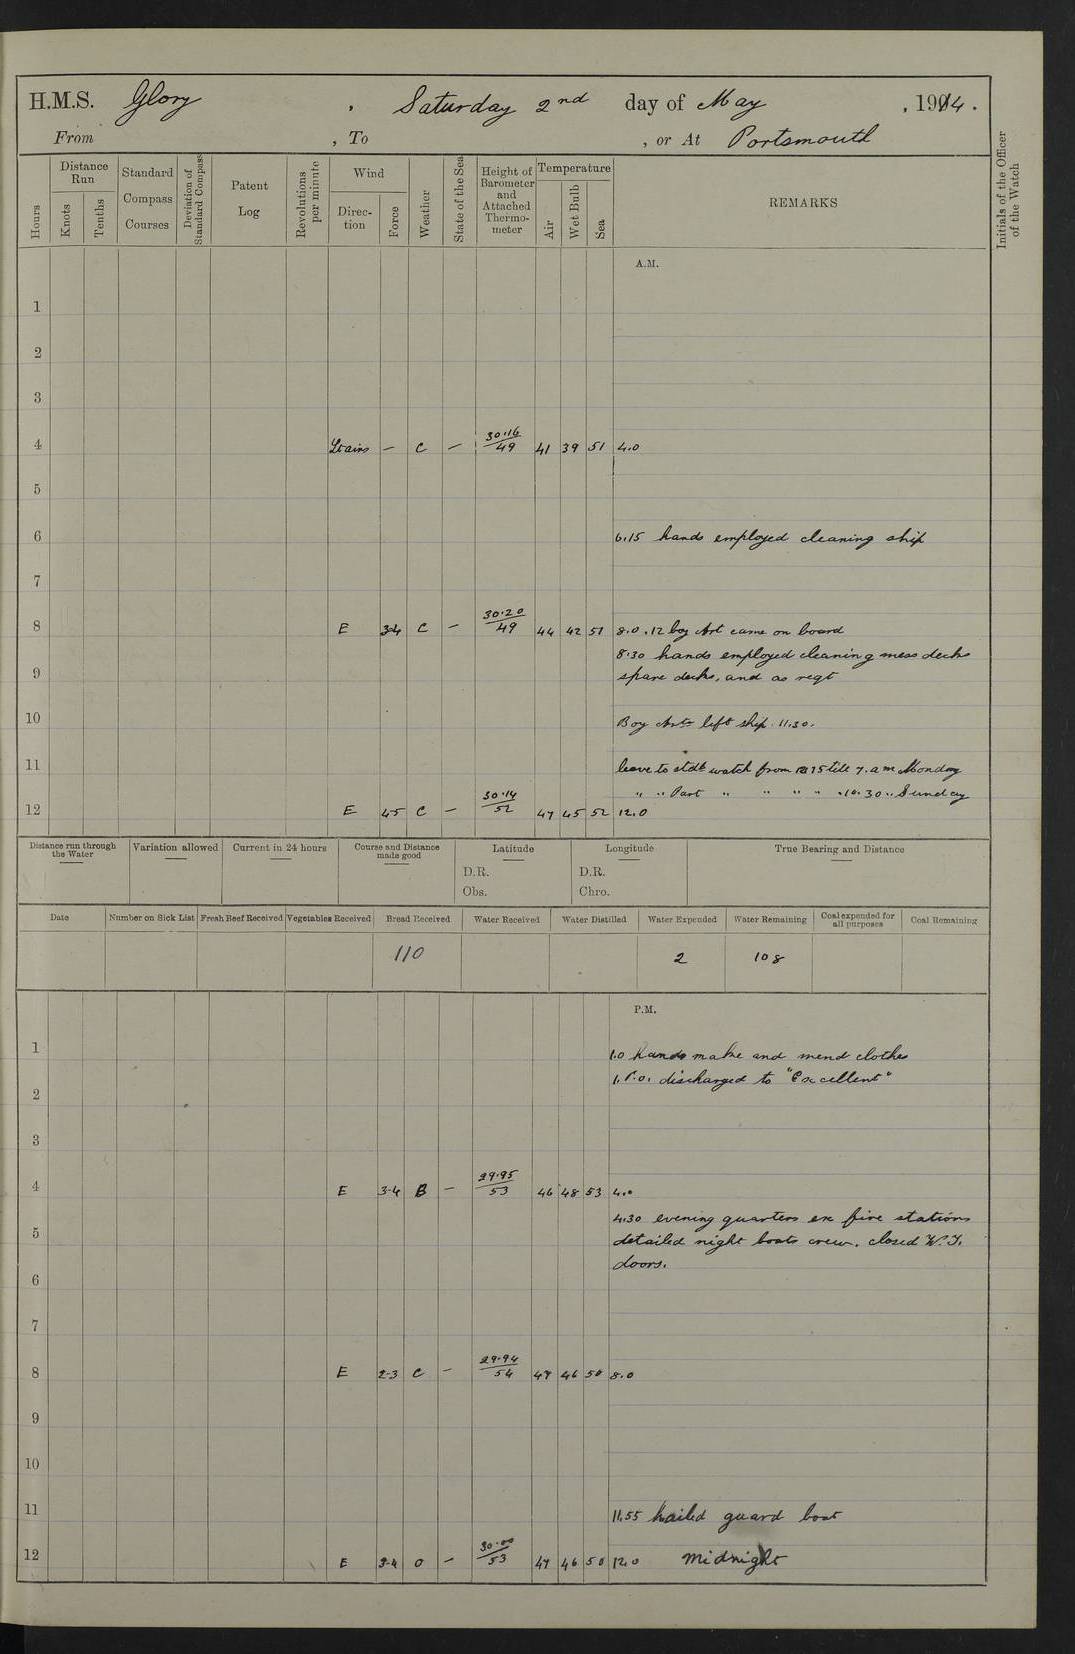 H.M.S. Glory , Saturday 2nd day of May , 1914.
From , To , or At Portsmouth
Hours Distance Run Knots Tenths Standard Compass Courses Deviation of Standard Compass Patent Log Revolutions per minute Wind Direc-tion Force Weather State of the Sea Height of Barometer and Attached Thermo-meter Temperature Air Wet Bulb Sea REMARKS Initials of the Officer of the Watch
A.M.
1
2
3
4 Lt airs — C — 30.16/49 41 39 51 4.0
5
6 6.15 hands employed cleaning ship
7
8 E 3-4 C — 30.20/49 44 42 51 8.0. 12 boy Art came on board
8.30 hands employed cleaning mess decks
9 spare decks, and as reqt
10 Boy Arts left ship. 11.30.
11 leave to stdb watch from 1215 till 7. a m Monday
" " Part " " " " " 10.30 " Sunday
12 E 4-5 C — 30.14/52 47 45 52 12.0
Distance run through the Water Variation allowed Current in 24 hours Course and Distance made good Latitude Longitude True Bearing and Distance
D.R. D.R.
Obs. Chro.
Date Number on Sick List Fresh Beef Received Vegetables Received Bread Received Water Received Water Distilled Water Expended Water Remaining Coal expended for all purposes Coal Remaining
110 2 108
P.M.
1 1.0 hands make and mend clothes
1. P.O. discharged to "Excellent"
2
3
4 E 3-4 B — 29.95/53 46 48 53 4.0
4.30 evening quarters ex fire stations
5 detailed night boats crew. closed W.T.
doors.
6
7
8 E 2-3 C — 29.94/54 47 46 50 8.0
9
10
11 11.55 hailed guard boat
12 E 3-4 O — 30.00/53 47 46 50 12.0 Midnight